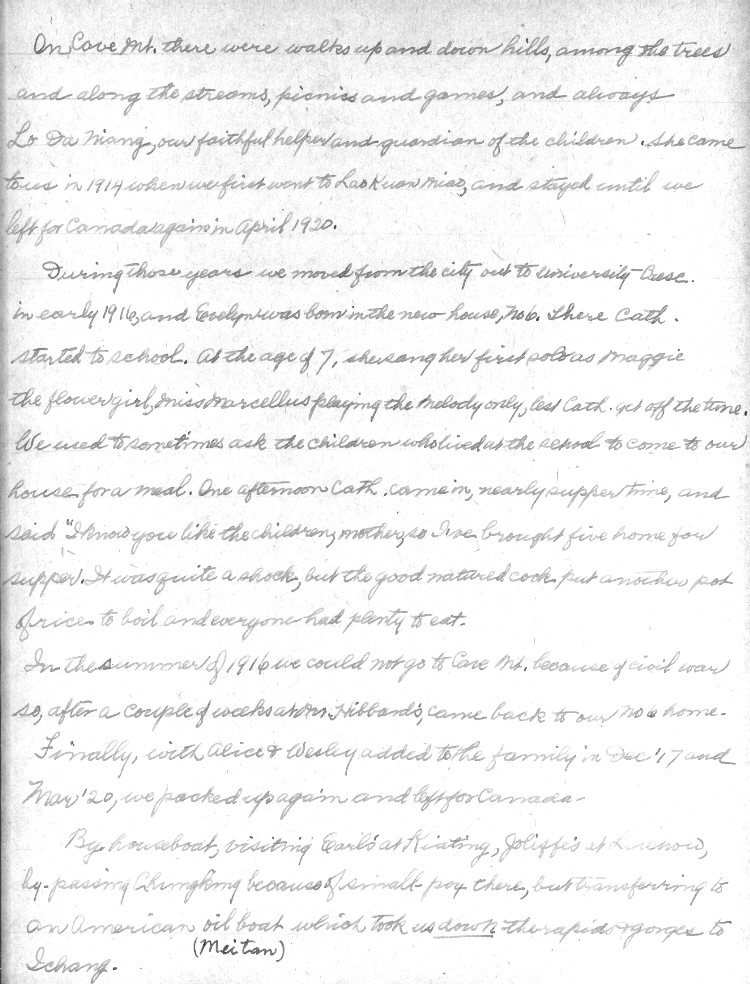 On Cave Mt. there were walks up and down hills, among the trees
and along the streams, picnics and games, and always
Lo Da Niang, our faithful helper and guardian of the children. She came
to us in 1914 when we first went to Lao Kuan Miao, and stayed until we
left for Canada again in April 1920.
During those years we moved from the city out to University Cresc.
in early 1916, and Evelyn was born in the new house, No 6. There Cath.
started to school. At the age of 7, she sang her first solo as Maggie
the flower girl, Miss Marcellus playing the melody only, lest Cath. get off the tune.
We used to sometimes ask the children who lived at the school to come to our
house for a meal. One afternoon Cath. came in, nearly supper time, and
said "I know you like the children, mother, so I've brought five home for
supper. It was quite a shock, but the good natured cook put another pot
of rice to boil and everyone had plenty to eat.
In the summer of 1916 we could not go to Cave Mt. because of civil war
so, after a couple of weeks at Mr. Hibbard's, came back to our No 6 home.
Finally, with Alice & Wesley added to the family in Dec '17 and
Mar '20, we packed up again and left for Canada -
By houseboat, visiting Earls' at Kiating, Joliffe's at Luchow,
by-passing Chungking because of small-pox there, but transferring to
an American oil boat which took us down the rapids & gorges to
(Meitan)
Ichang.